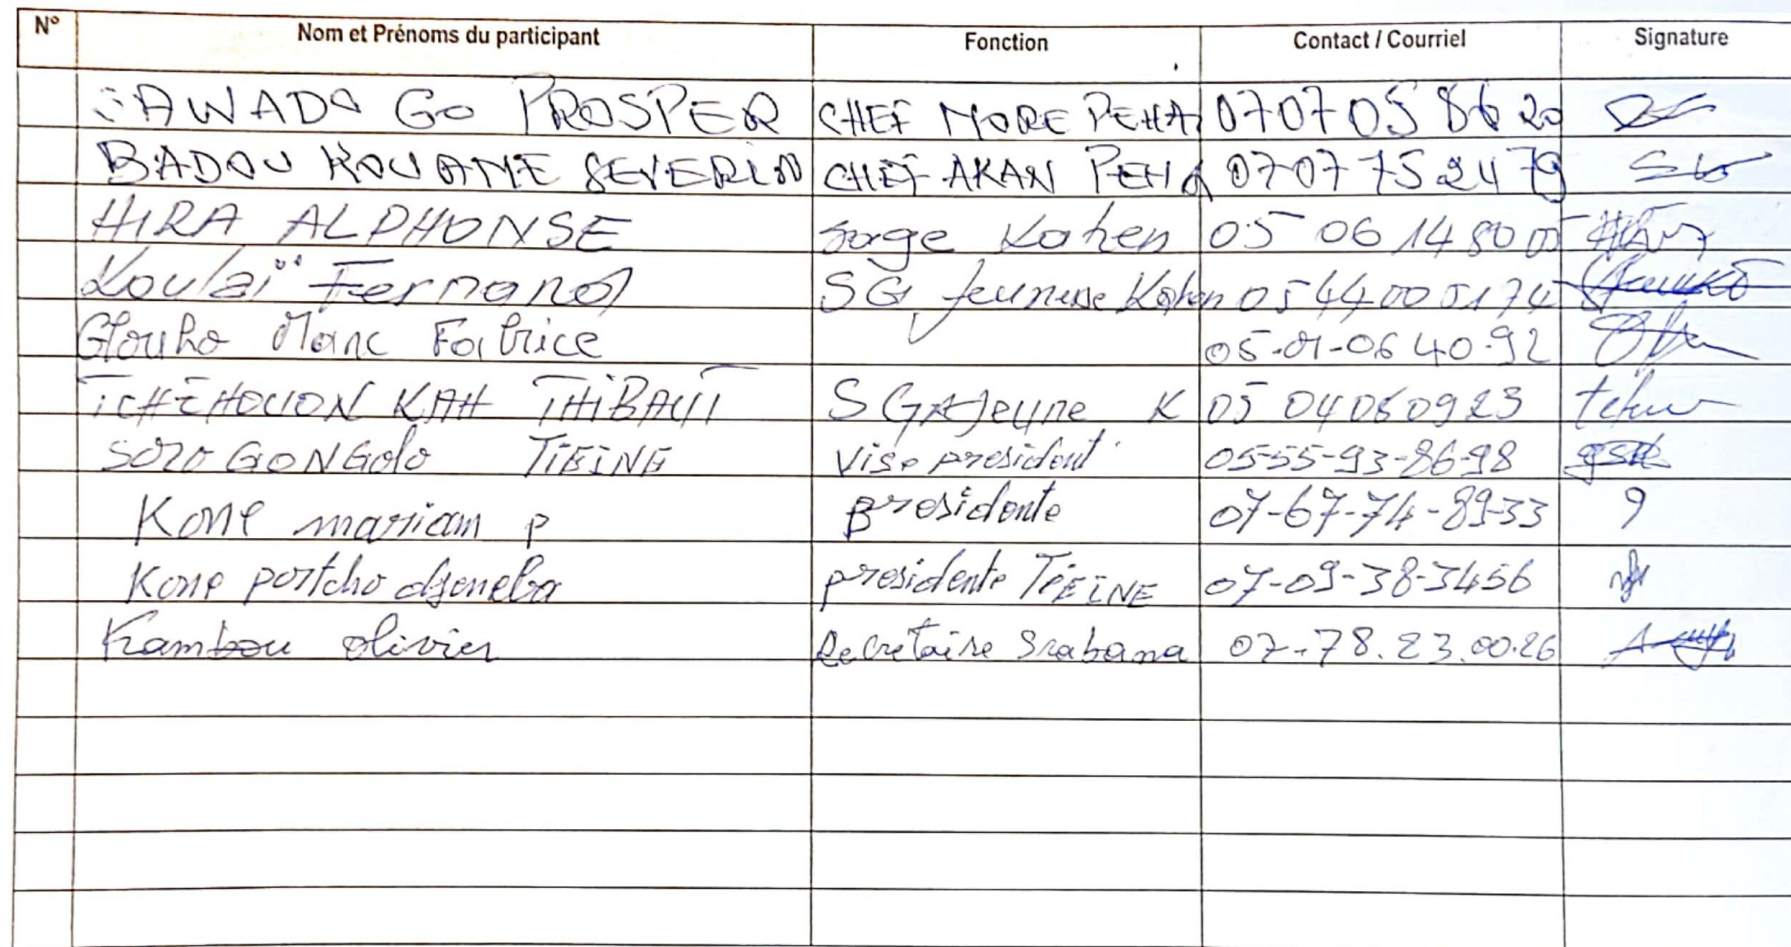 N° Nom et Prénoms du participant Fonction Contact / Courriel Signature
SAWADO GO PROSPER CHEF MORE PEHA 07 07 05 86 20
BADOU KOUAME SEVERIN CHEF AKAN PEHA 07 07 75 24 79
HIRA ALPHONSE Sage Kahen 05 06 14 80 00
Koulaï Fernand SG Jeunesse Kahen 05 44 00 51 74
Glouho Marc Fabrice 05-01-06 40-92
TCHÉHOUON KAH THIBAUT SGA Jeune K 05 04 06 09 23
SORO GONGolo TIEINE Vise president 05-55-93-86-98
Kone mariam p presidente 07-67-74-89-33
Kone portcho djeneba presidente TIEINE 07-09-38-3456
Kambou olivier Secretaire Srabana 07-78.23.00.26